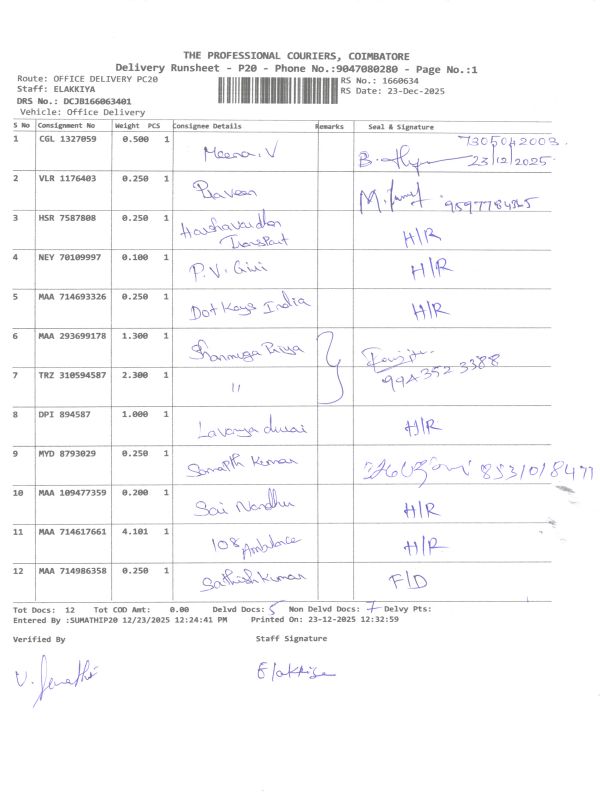 THE PROFESSIONAL COURIERS, COIMBATORE
Delivery Runsheet - P20 - Phone No.:9047080280 - Page No.:1
Route: OFFICE DELIVERY PC20
Staff: ELAKKIYA
DRS No.: DCJB166063401
Vehicle: Office Delivery
RS No.: 1660634
RS Date: 23-Dec-2025
S No Consignment No Weight PCS Consignee Details Remarks Seal & Signature
1 CGL 1327059 0.500 1 Meena.V 7305042003.
23/12/2025
2 VLR 1176403 0.250 1 Praveen 9597784865
3 HSR 7587808 0.250 1 Harshavardhan
Transport H/R
4 NEY 70109997 0.100 1 P.V. Giri H/R
5 MAA 714693326 0.250 1 Dot Kays India H/R
6 MAA 293699178 1.300 1 Shanmuga Priya
994 352 3388
7 TRZ 310594587 2.300 1 "
8 DPI 894587 1.000 1 Lavanya durai H/R
9 MYD 8793029 0.250 1 Sampath Kumar 8531018477
10 MAA 109477359 0.200 1 Sai Nandhu H/R
11 MAA 714617661 4.101 1 108 Ambulance H/R
12 MAA 714986358 0.250 1 Sathish Kumar F/D
Tot Docs: 12 Tot COD Amt: 0.00 Delvd Docs: 5 Non Delvd Docs: 7 Delvy Pts:
Entered By :SUMATHIP20 12/23/2025 12:24:41 PM Printed On: 23-12-2025 12:32:59
Verified By Staff Signature
Elakkiya